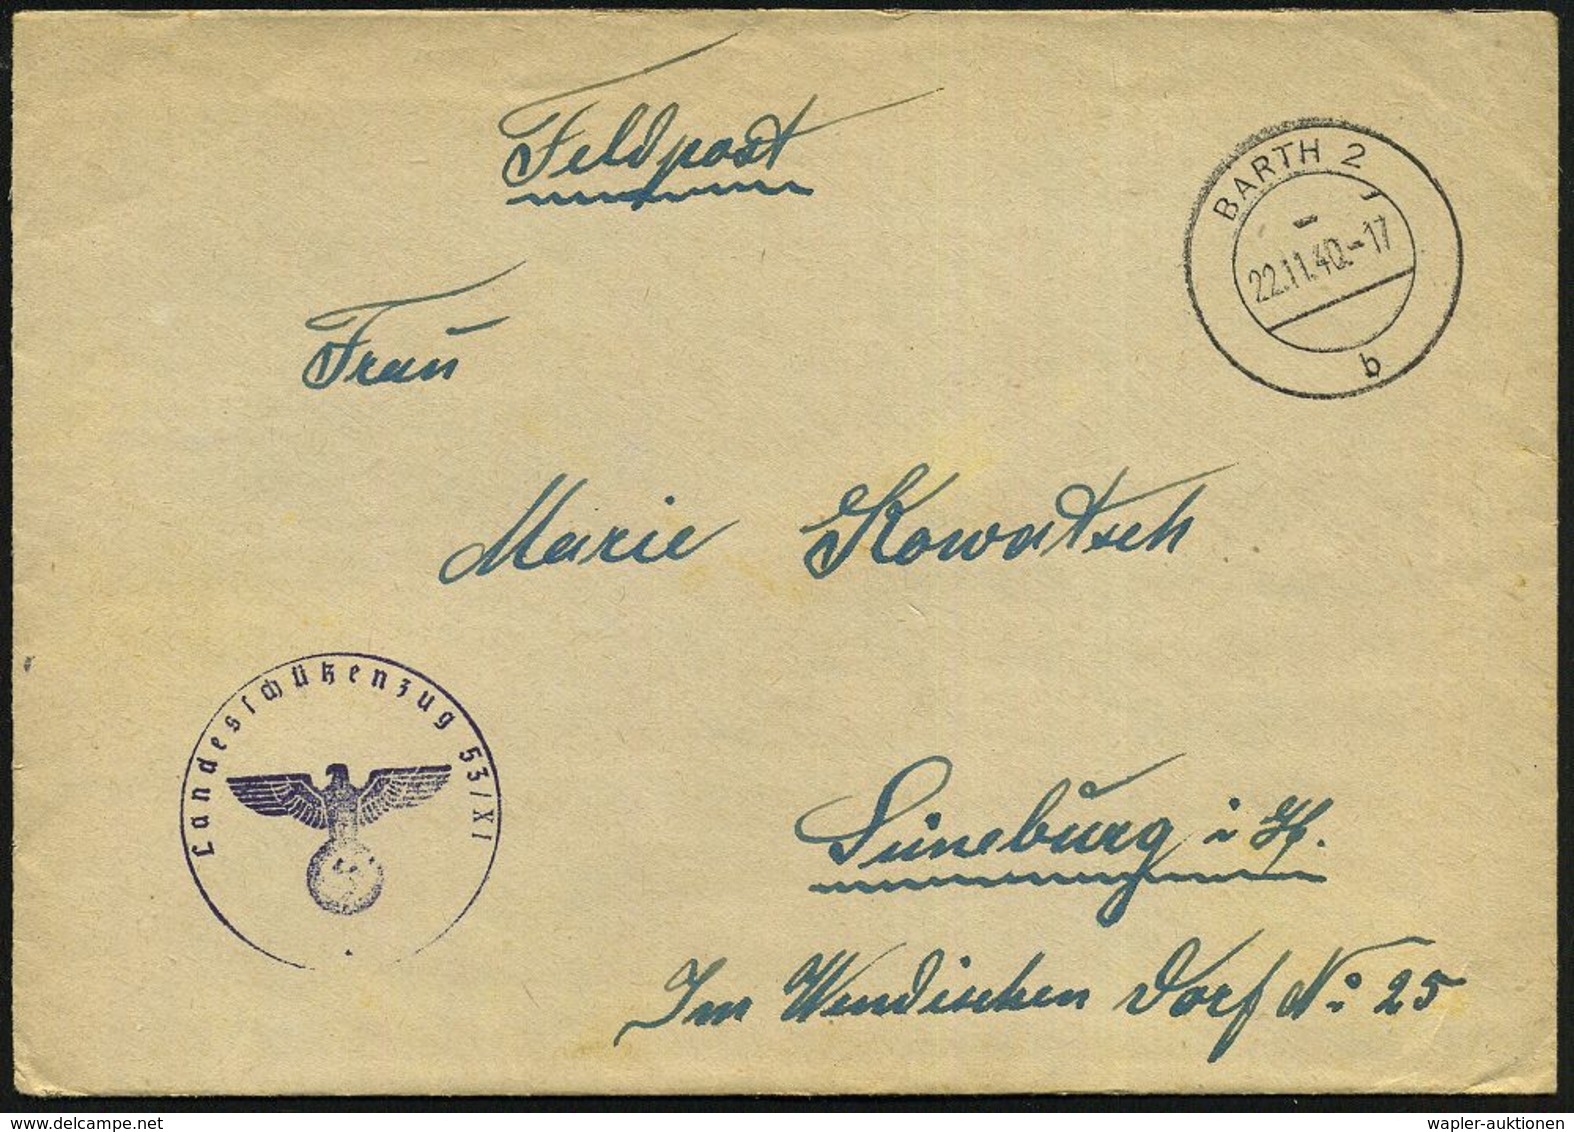 Feldpost
BARTH 2
22.11.40.-17
b
Frau
Marie Kowatsch
Landesschützenzug 53/XI
Lüneburg i H.
Im Wendischen Dorf No 25
wapler-auktionen